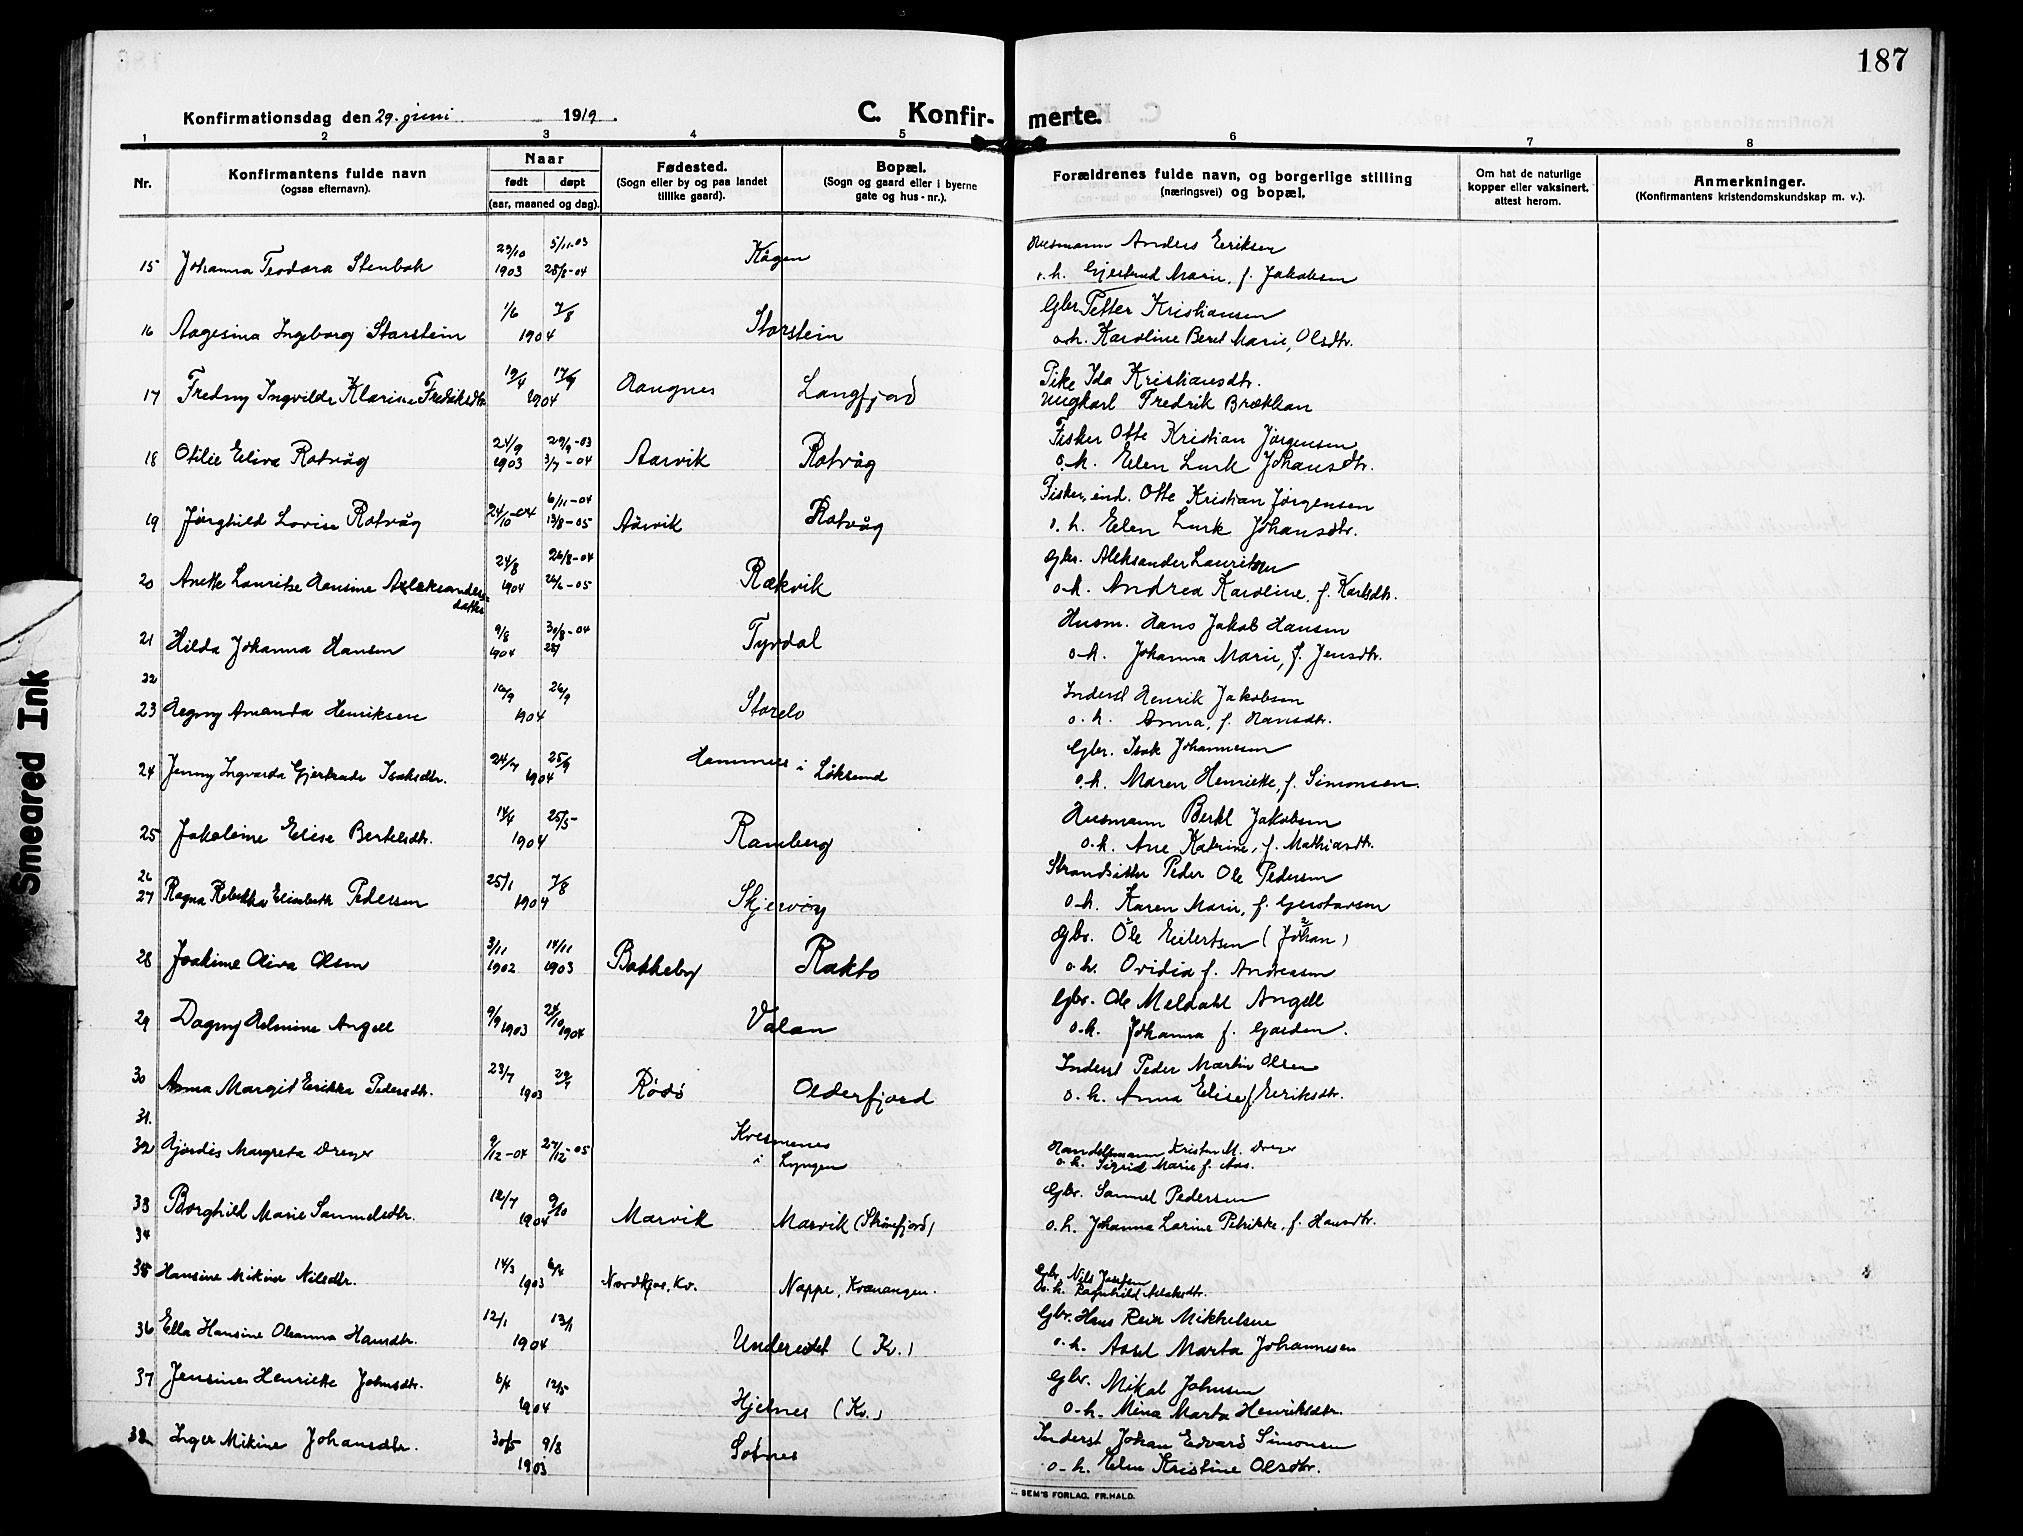 187
Konfirmationsdag den 29. juni 1919.
C. Konfirmerte.
1 2 3 4 5 6 7 8
Nr.
Konfirmantens fulde navn
(ogsaa efternavn).
Naar
født døpt
(aar, maaned og dag).
Fødested.
(Sogn eller by og paa landet
tillike gaard).
Bopæl.
(Sogn og gaard eller i byerne
gate og hus-nr.).
Forældrenes fulde navn, og borgerlige stilling
(næringsvei) og bopæl.
Om hat de naturlige
kopper eller vaksinert.
attest herom.
Anmerkninger.
(Konfirmantens kristendomskundskap m. v.).
29/10 5/11-03 Husmann Anders Eriksen
15 Johanna Teodora Stenbak 1903 28/8-04 Kågen o.h. Gjertrud Marie, f. Jakobsen
1/6 7/8 Gbr. Petter Kristiansen
16 Aagesina Ingeborg Storstein 1904 Storstein o.h. Karoline Beret Marie, Olsdtr.
19/4 17/9 Pike Ida Kristiansdtr.
17 Fredny Ingvilde Klarine Fredriksdtr 1904 Hangnes Langfjord Ungkarl Fredrik Brækkan
24/9 29/9-03 Fisker Otte Kristian Jørgensen
18 Otilie Eliva Rotvåg 1903 3/7-04 Aarvik Rotvåg o.h. Elen Lurk Johansdtr.
24/10-04 6/11-04 Fisker, ind. Otte Kristian Jørgensen
19 Jørghild Lovise Rotvåg 13/8-05 Aarvik Rotvåg o.h. Elen Lurk Johansdtr.
24/8 26/8-04 Gbr. Aleksander Lauritsen
20 Anette Lauritse Hansine Aleksandersdatter 1904 26/6-05 Rækvik o.h. Andrea Karoline, f. Karlsdtr.
9/8 30/8-04 Husm. Hans Jakob Hansen
21 Hilda Johanna Hansen 1904 Tyrdal o.h. Johanna Marie, f. Jensdtr.
22
16/9 26/9 Inderst Henrik Jakobsen
23 Hegny Amanda Henriksen 1904 Storelv o.h. Anna, f. Hansdtr.
24/7 25/9 Gbr. Isak Johannesen
24 Jenny Ingvarda Gjertrude Isaksdtr. 1904 Hamnes i Løksund o.h. Maren Henriette, f. Simonsen.
14/4 25/5 Husmann Bertel Jakobsen
25 Jakobine Elise Bertelsdtr. 1904 Ramberg o.h. Ane Katrine, f. Mathiasdtr.
26
25/1 7/8 Strandsitter Peder Ole Pedersen
27 Ragna Rebekka Elisabeth Pedersen 1904 Skjervøy o.h. Karen Marie, f. Gustavsen
3/11 14/11 Gbr. Ole Eilertsen (Johan)
28 Joakime Oliva Olsen 1902 1903 Bakkeby Rakto o.h. Ovidia f. Andreasen
9/9 24/10 Gbr. Ole Meldahl Angell
29 Dagny Helmine Angell 1903 1904 Valan o.h. Johanna f. Garden.
23/7 29/7 Inderst Peder Martin Olsen
30 Anna Margit Erikke Pedersdtr. 1903 Rödö Olderfjord o.h. Anna Elise f. Eriksdtr.
31.
32 Hjørdis Margreta Dreyer 9/12-04 27/12-05 Kvesmenes i Lyngen Handelsmann Kristen M. Dreyer
o.h. Sigrid Marie f. Aas.
12/7 9/10 Gbr. Samuel Pedersen
33 Borghild Marie Samuelsdtr. 1904 Marvik Marvik (Skönsfjord) o.h. Johanna Larine Petrikke, f. Hansdtr.
34
14/3 6/4 Gbr. Nils Josefsen
35 Hansine Mikine Nilsdtr. 1903 Nordkjos. Kv. Nappe, Kvænangen. o.h. Ragnhild Aslaksdtr.
12/1 13/1 Gbr. Hans Reier Mikkelsen
36 Ella Hansine Oleanna Hansdtr. 1904 Undereidet (Kv.) o.h. Assel Marta Johannesen
6/4 12/5 Gbr. Mikal Johnsen
37 Jensine Henriette Johnsdtr. 1904 Hjelnes (Kv.) o.h. Mina Marta Henriksdtr.
30/5 9/8 Inderst Johan Edvard Simonsen
38 Inger Mikine Johansdtr. 1903 Sotnes o.h. Elen Kristine Olsdtr.
SEM'S FORLAG, FR.HALD.
Smeared Ink